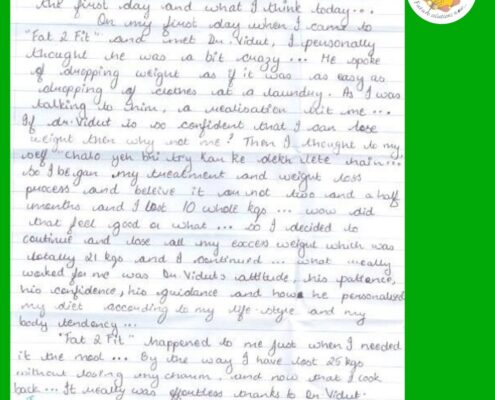 the first day and what I think today...
On my first day when I came to
"Fat 2 Fit" and met Dr. Vidut, I personally
thought he was a bit crazy... He spoke
of dropping weight as if it was as easy as
dropping of clothes at a laundry. As I was
talking to him, a realisation hit me...
If dr. Vidut is so confident that I can lose
weight then why not me? Then I thought to my
self "chalo yeh bhi try kar ke dekh lete hain...
So I began my treatment and weight loss
process and beleive it or not two and a half
months and I lost 10 whole kgs... wow did
that feel good or what... so I decided to
continue and lose all my excess weight which was
totally 21 kgs and I continued... what really
worked for me was Dr. Vidut's attitude, his patience,
his confidence, his guidance and how he personalised
my diet according to my life-style and my
body tendency...
"Fat 2 Fit" happened to me just when I needed
it the most... By the way I have lost 25 kgs
without losing my charm, and now that I look
back... It really was effortless thanks to Dr. Vidut.